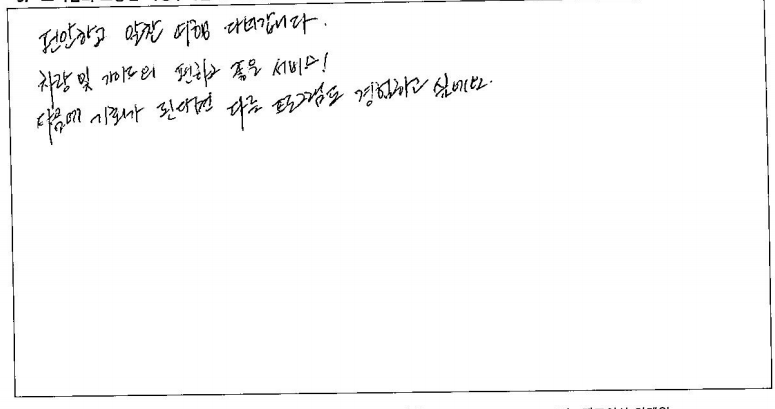 편안하고 알찬 여행 다녀갑니다.
차량 및 가이드의 편하고 좋은 서비스!
다음에 기회가 된다면 다른 프로그램도 경험하고 싶네요.